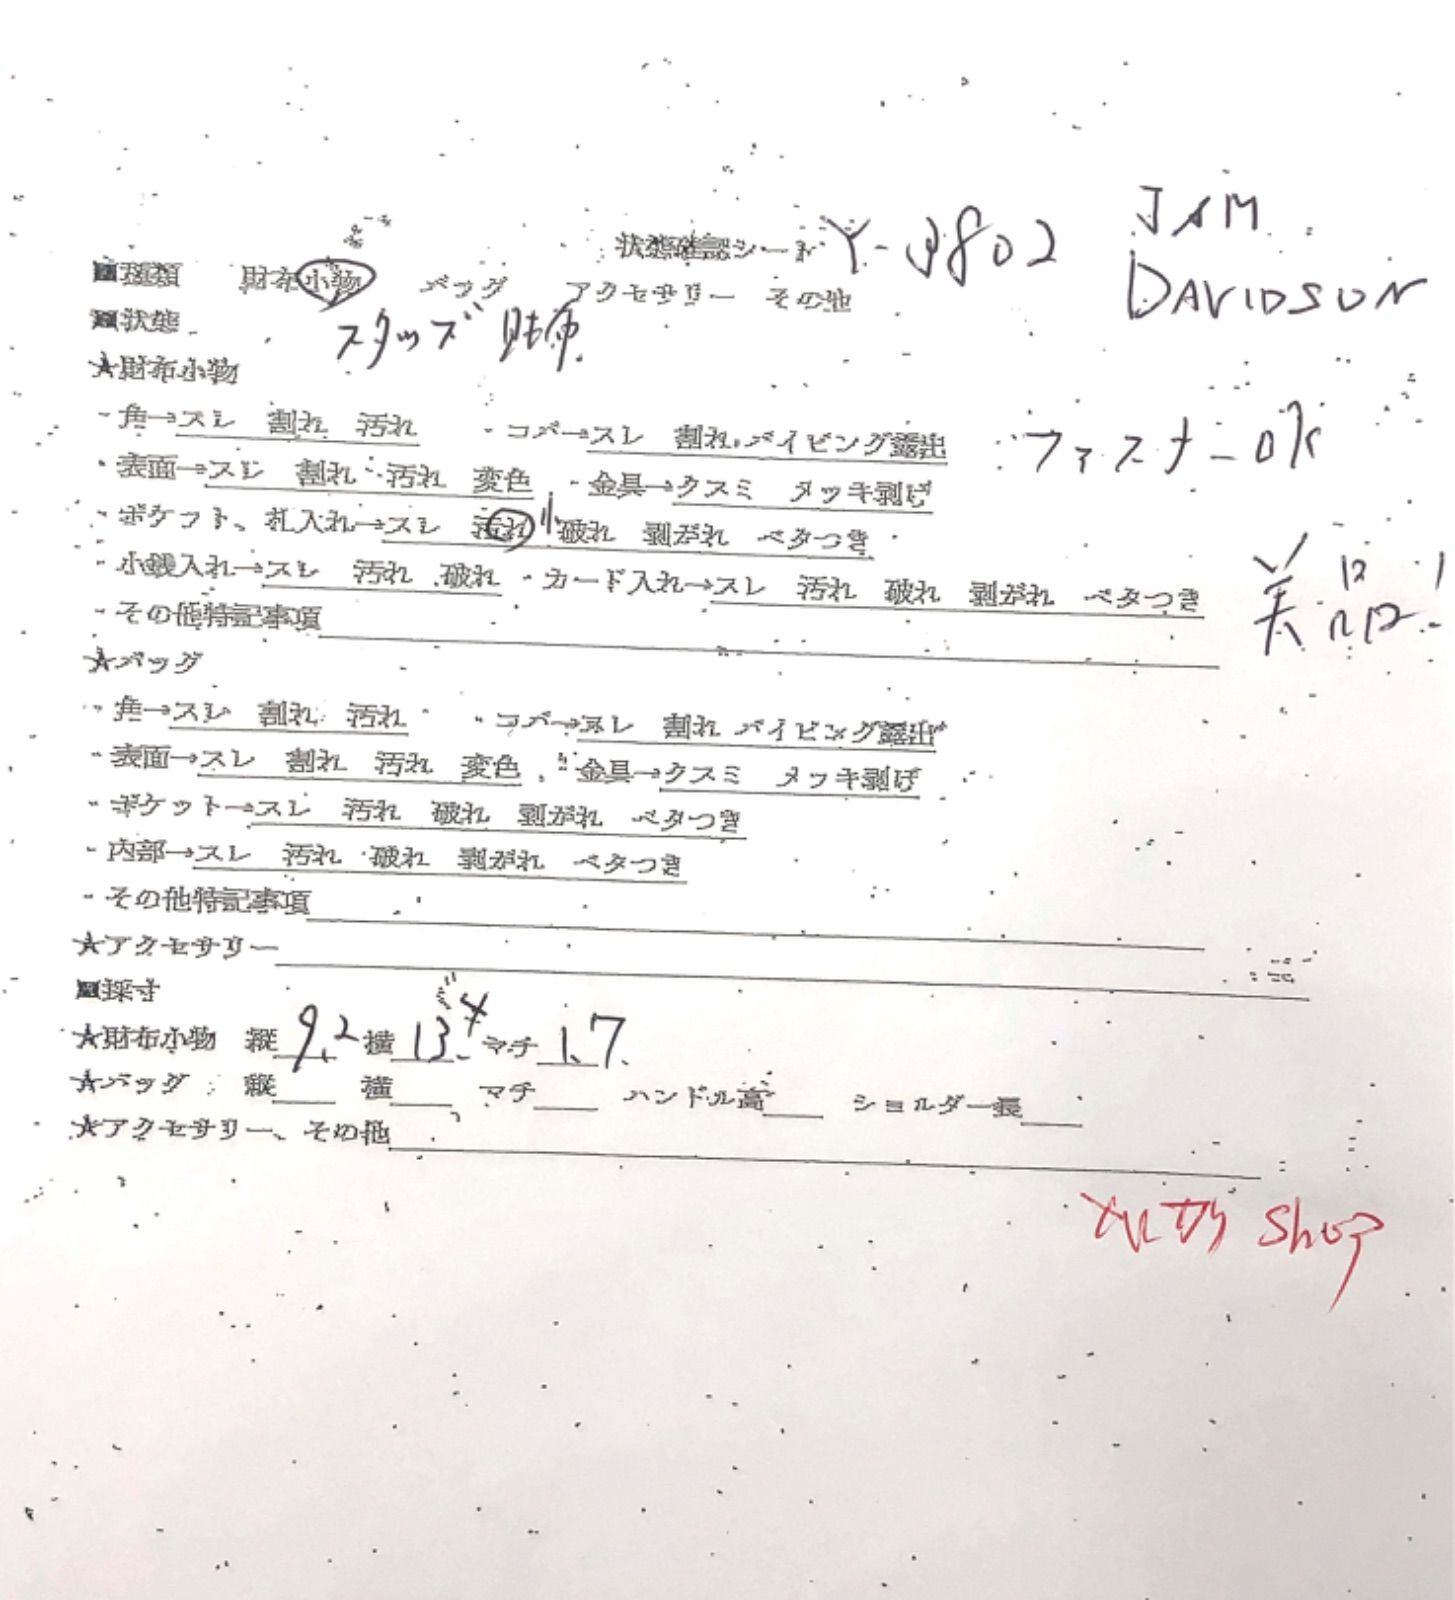 状態確認シート Y-3802 JAM
DAVIDSON
■種類 財布小物 バッグ アクセサリー その他
■状態 スタッズ
★財布小物
・角→スレ 割れ 汚れ ・コバ→スレ 割れ パイピング露出 ファスナーOK
・表面→スレ 割れ 汚れ 変色 ・金具→クスミ メッキ剥げ
・ポケット、札入れ→スレ 汚れ 小 破れ 剥がれ ベタつき
・小銭入れ→スレ 汚れ 破れ ・カード入れ→スレ 汚れ 破れ 剥がれ ベタつき 美品!
・その他特記事項
★バッグ
・角→スレ 割れ 汚れ ・コバ→スレ 割れ パイピング露出
・表面→スレ 割れ 汚れ 変色 ・金具→クスミ メッキ剥げ
・ポケット→スレ 汚れ 破れ 剥がれ ベタつき
・内部→スレ 汚れ 破れ 剥がれ ベタつき
・その他特記事項
★アクセサリー
■採寸
★財布小物 縦 9.2 横 13.4 マチ 1.7
★バッグ 縦 横 マチ ハンドル高 ショルダー長
★アクセサリー、その他
Shop